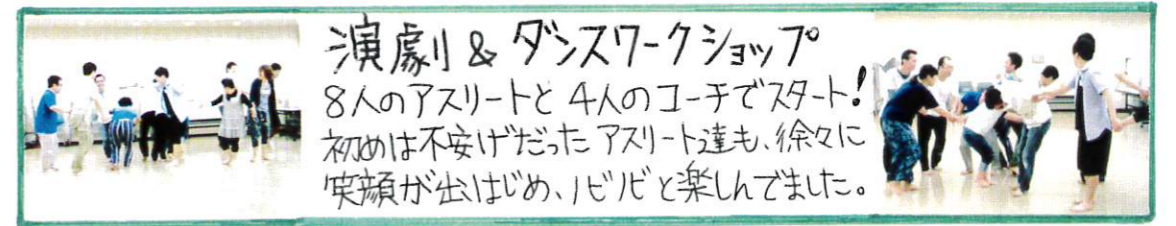 演劇&ダンスワークショップ
8人のアスリートと4人のコーチでスタート!
初めは不安げだったアスリート達も、徐々に
笑顔が出はじめ、ノビノビと楽しんでました。